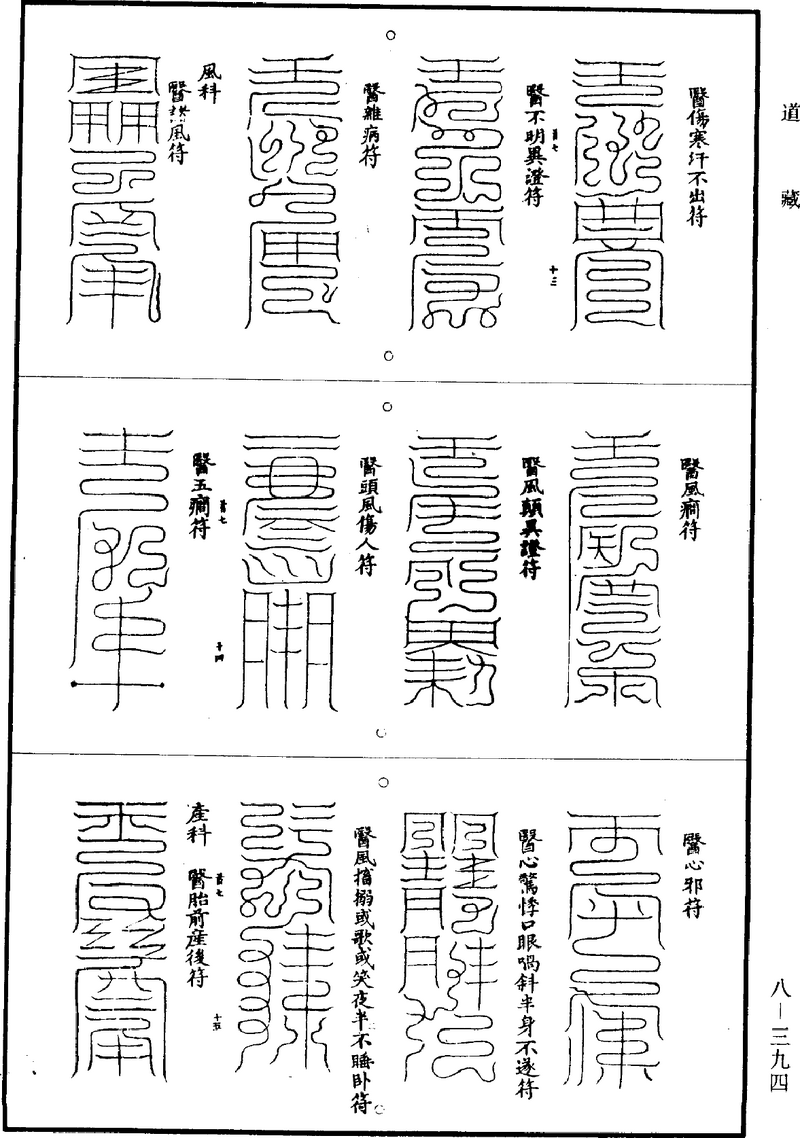 道藏
醫傷寒汗不出符
醫不明異證符
菑七
十三
醫雜病符
風科
醫𤍠風符
醫風癎符
醫風顛異證符
醫頭風傷人符
醫五癎符
菑七
十四
醫心邪符
醫心驚悸口眼喎斜半身不遂符
醫風搐搦或歌或笑夜半不睡卧符
產科
醫胎前產後符
菑七
十五
八—三九四